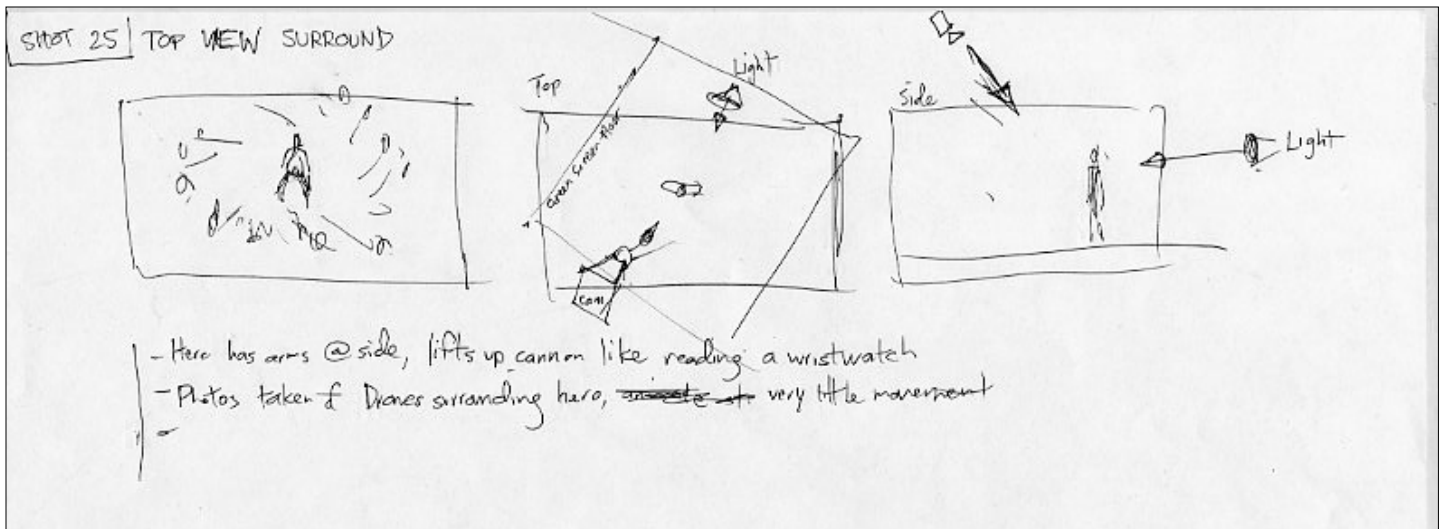 SHOT 25 TOP VIEW SURROUND
Top
Light
Green screen floor
Cam
Side
Light
- Hero has arms @ side, lifts up cannon like reading a wristwatch
- Photos taken of Drones surrounding hero, very little movement
-